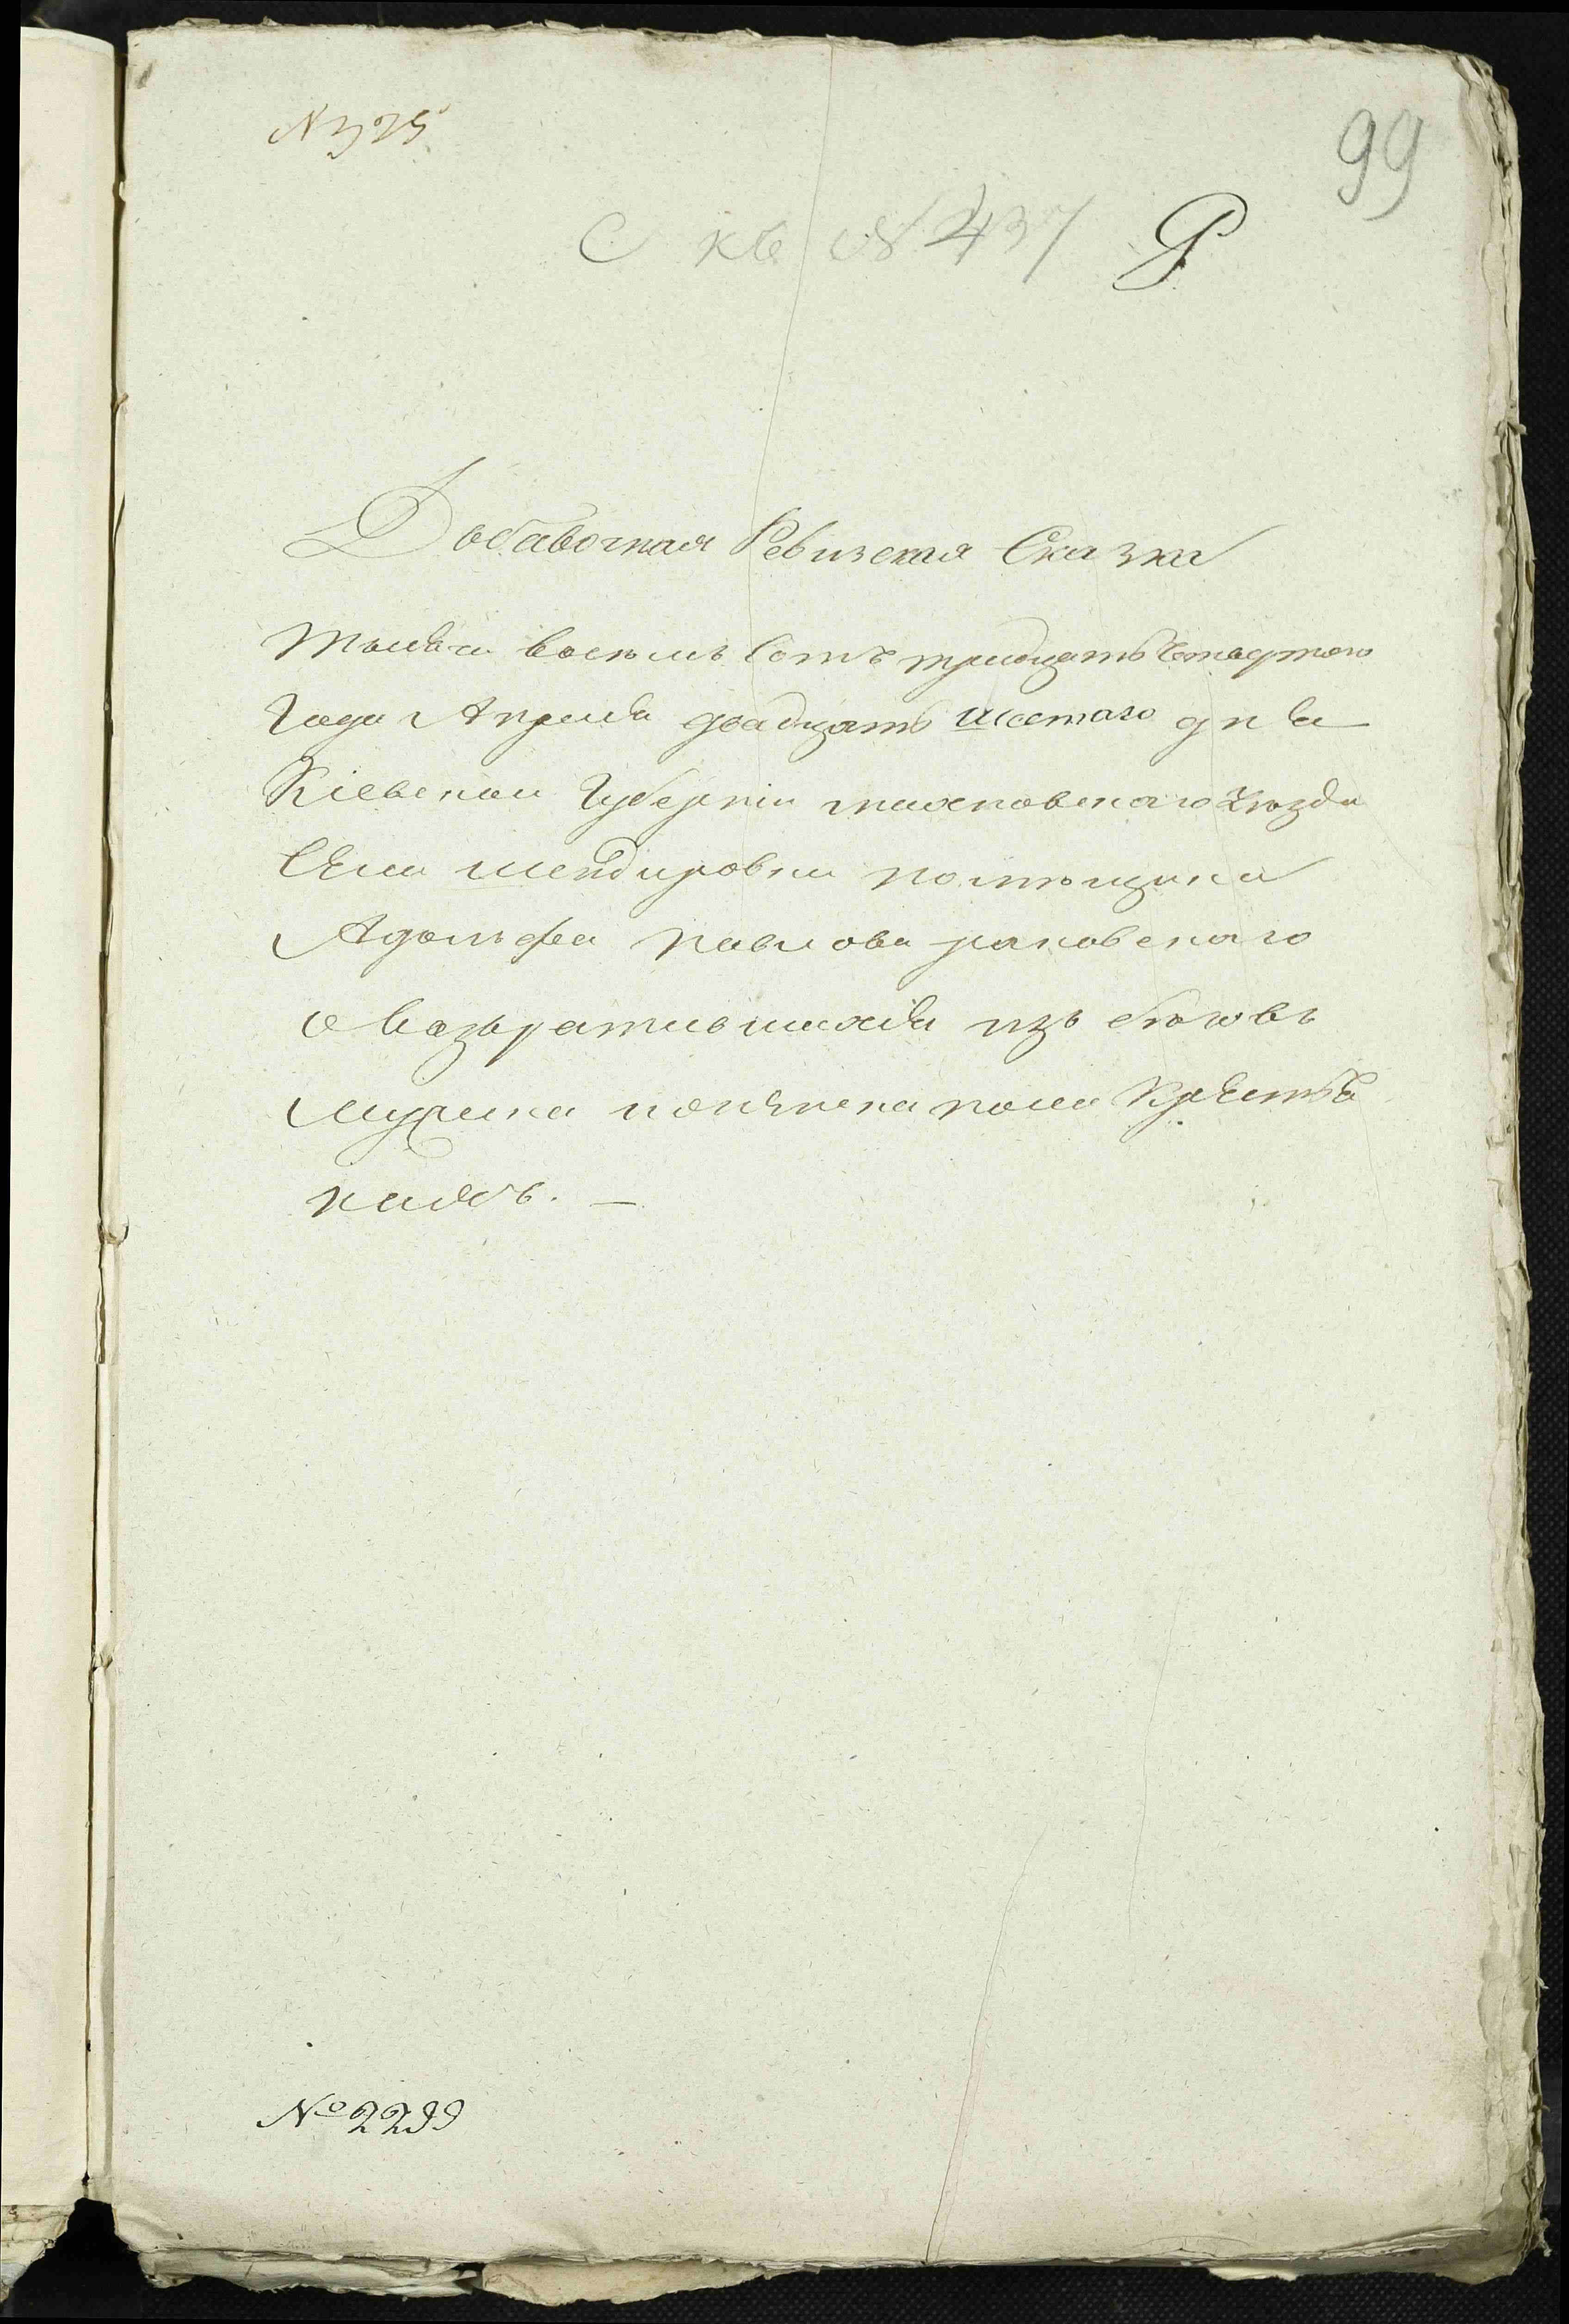 N 325
99
С кв N 437
Добавочная Ревизская Сказка
тысяча восемь сотъ тридцать Четвертого
Года Апреля двадцать шестаго дня
Кіевской Губерніи махновского уезда
Села шендировки помѣщика
Адольфа павлова раковского
о возъратившихся изъ бѣговъ
мужеска и женска пола Крестья
нахъ. —
№ 2299